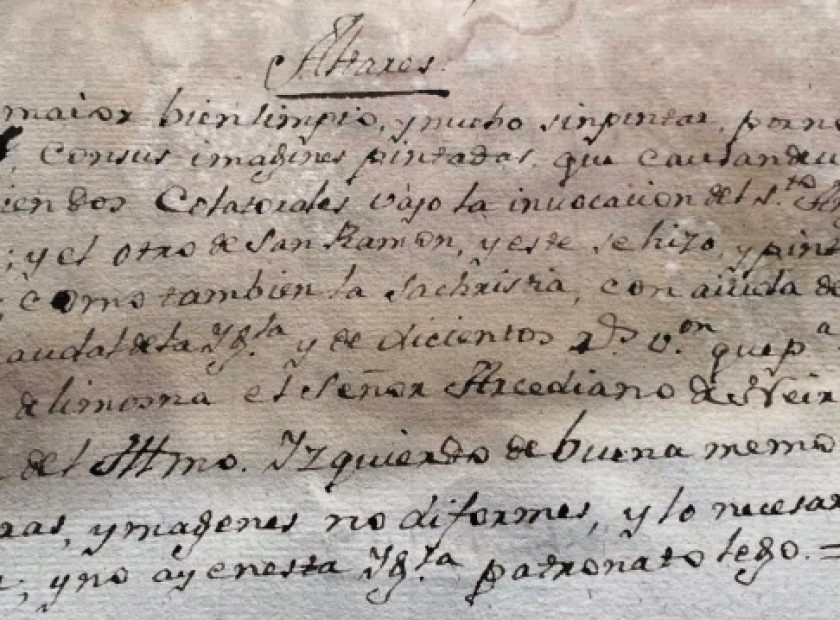 Altares.
maior bien limpio, y mucho sin pintar, por no
, con sus imagines pintadas, que causan deu
iendos Colatorales vajo la invocacion del S.to
; y el otro de San Ramon, y este se hizo, y pint
; como tambien la sachristia, con aiuda de
audal de la Ygl.ta y de dicientos r.s v.on que p.a
de limosna el Señor Arcediano de Neir
del Yttmo. Izquierdo de buena memo
ras, y magenes no diformes, y lo necesar
; y no ay en esta Ygl.ta patronato lego. =